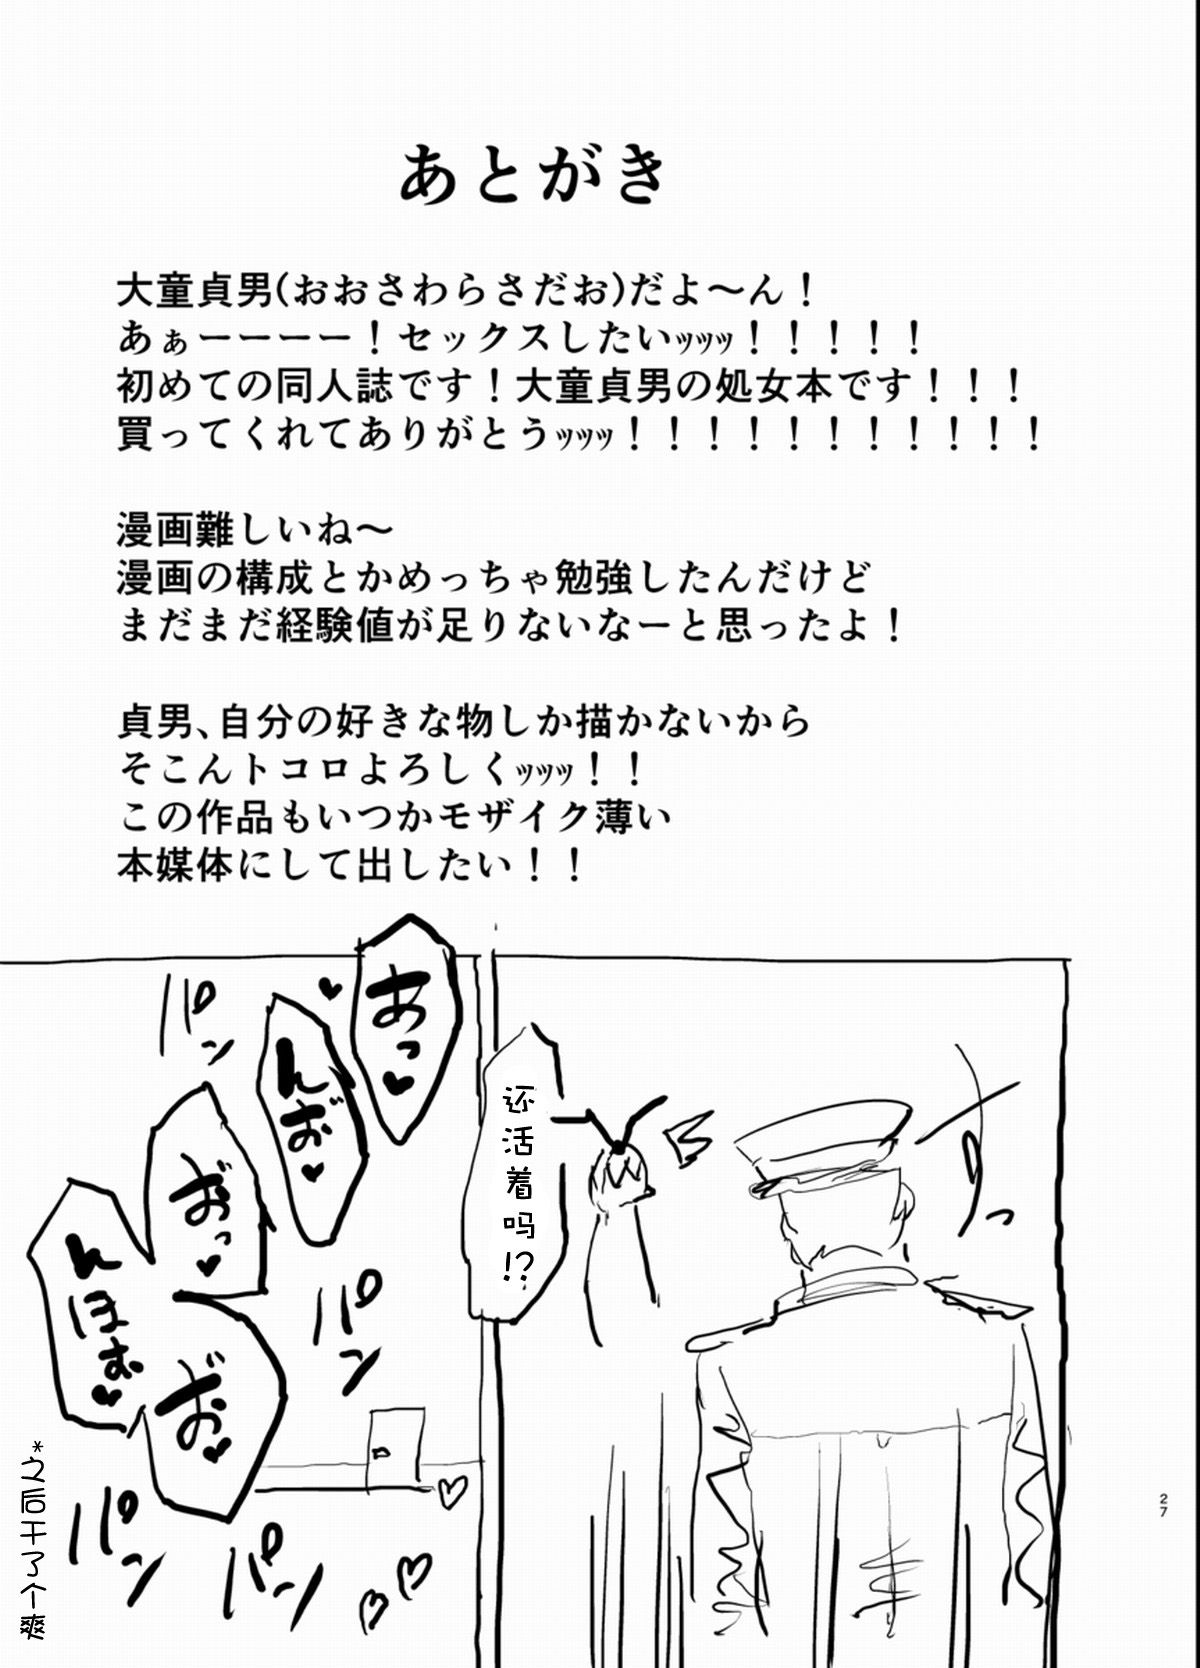 あとがき
大童貞男(おおさわらさだお)だよ～ん！
あぁーーーー！セックスしたいｯｯｯ！！！！！
初めての同人誌です！大童貞男の処女本です！！！
買ってくれてありがとうｯｯｯ！！！！！！！！！！！
漫画難しいね～
漫画の構成とかめっちゃ勉強したんだけど
まだまだ経験値が足りないなーと思ったよ！
貞男、自分の好きな物しか描かないから
そこんトコロよろしくｯｯｯ！！
この作品もいつかモザイク薄い
本媒体にして出したい！！
还活着吗!?
あっ♥
んお゛♥
お゛っ♥
お゛♥
んほお♥
パン
パン
パン
パン
*之后干了个爽
27